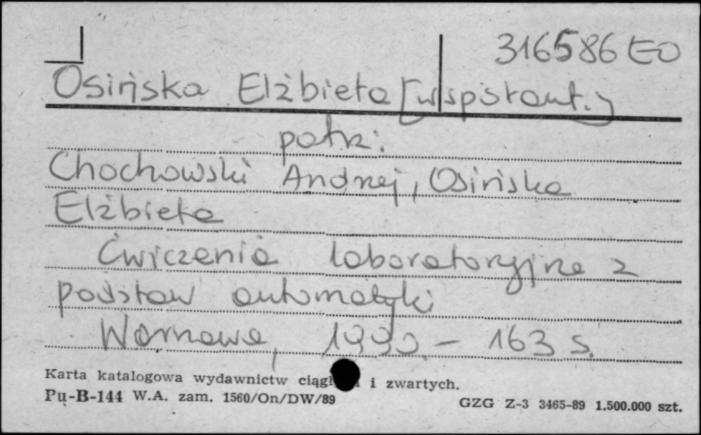 316586 EO
Osińska Elżbieta [współaut.]
patrz:
Chochowski Andrzej, Osińska
Elżbieta
Ćwiczenia laboratoryjne z
podstaw automatyki
Warszawa, 1990. - 163 s.
Karta katalogowa wydawnictw i zwartych.
Pu-B-144 W.A. zam. 1560/On/DW/89
GZG Z-3 3465-89 1.500.000 szt.